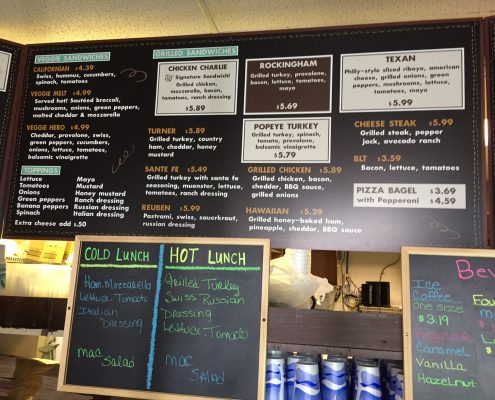 VEGGIE SANDWICHES
CALIFORNIAN $4.39
Swiss, hummus, cucumbers,
spinach, tomatoes
VEGGIE MELT $4.99
Served hot! Sautéed broccoli,
mushrooms, onions, green peppers,
melted cheddar & mozzarella
VEGGIE HERO $4.99
Cheddar, provolone, swiss,
green peppers, cucumbers,
onions, lettuce, tomatoes,
balsamic vinaigrette
TOPPINGS
Lettuce
Tomatoes
Onions
Green peppers
Banana peppers
Spinach
Mayo
Mustard
Honey mustard
Ranch dressing
Russian dressing
Italian dressing
Extra cheese add $.50
GRILLED SANDWICHES
CHICKEN CHARLIE
Signature Sandwich!
Grilled chicken,
mozzarella, bacon,
tomatoes, ranch dressing
$5.89
TURNER $5.89
Grilled turkey, country
ham, cheddar, honey
mustard
SANTE FE $5.49
Grilled turkey with sante fe
seasoning, muenster, lettuce,
tomatoes, ranch dressing
REUBEN $5.99
Pastrami, swiss, sauerkraut,
russian dressing
ROCKINGHAM
Grilled turkey, provolone,
bacon, lettuce, tomatoes,
mayo
$5.69
POPEYE TURKEY
Grilled turkey, spinach,
tomato, provolone,
balsamic vinaigrette
$5.79
GRILLED CHICKEN $5.89
Grilled chicken, bacon,
cheddar, BBQ sauce,
grilled onions
HAWAIIAN $5.29
Grilled honey-baked ham,
pineapple, cheddar, BBQ sauce
TEXAN
Philly-style sliced ribeye, american
cheese, grilled onions, green
peppers, mushrooms, lettuce,
tomatoes, mayo
$5.99
CHEESE STEAK $5.99
Grilled steak, pepper
jack, avocado ranch
BLT $3.59
Bacon, lettuce, tomatoes
PIZZA BAGEL $3.69
with Pepperoni $4.59
COLD LUNCH
Ham, Mozzarella
Lettuce, Tomato
Italian
Dressing
Mac
Salad
HOT LUNCH
Grilled Turkey
Swiss Russian
Dressing
Lettuce, Tomato
Mac
Salad
Bev
Ice
Coffee
one size
$3.19
Regular
Caramel
Vanilla
Hazelnut